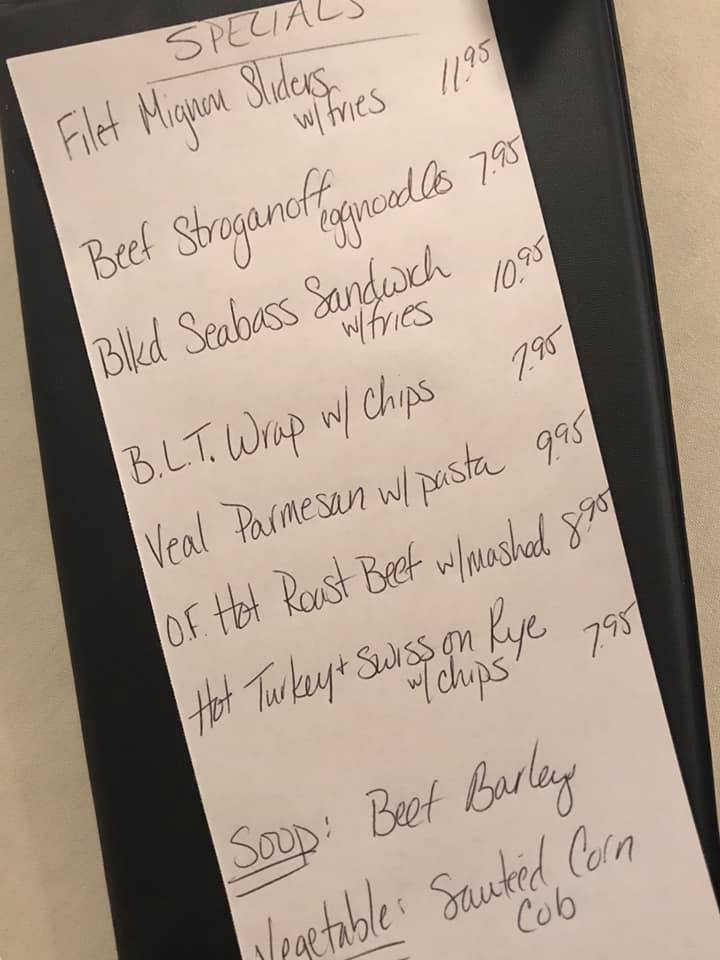 SPECIALS
Filet Mignon Sliders 11.95
w/fries
Beef Stroganoff 7.95
eggnoodles
Blkd Seabass Sandwich 10.95
w/fries
B.L.T. Wrap w/ Chips 7.95
Veal Parmesan w/ pasta 9.95
O.F. Hot Roast Beef w/mashed 8.95
Hot Turkey + Swiss on Rye 7.95
w/ chips
Soup: Beef Barley
Vegetable: Sauteéd Corn
Cob